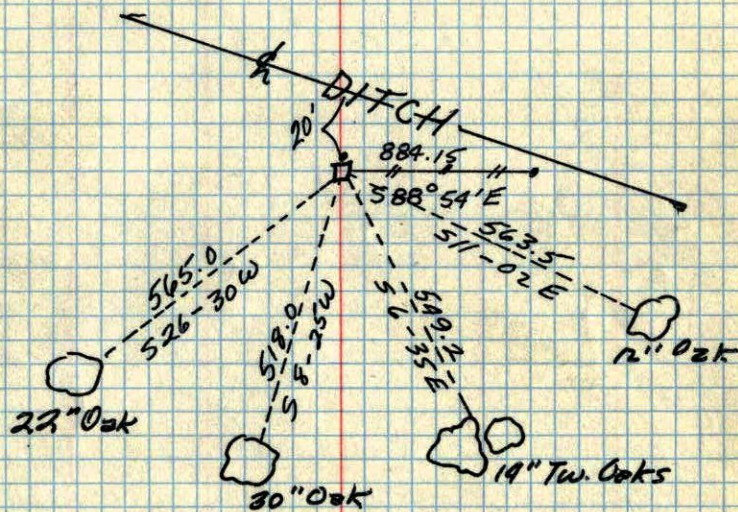 ℄
DITCH
20'
884.15
S 88° 54' E
563.5
S11-02 E
565.0
S26-30W
518.0
S 8-25W
549.2
S 6-35E
12" Oak
22" Oak
19" Tw. Oaks
30" Oak